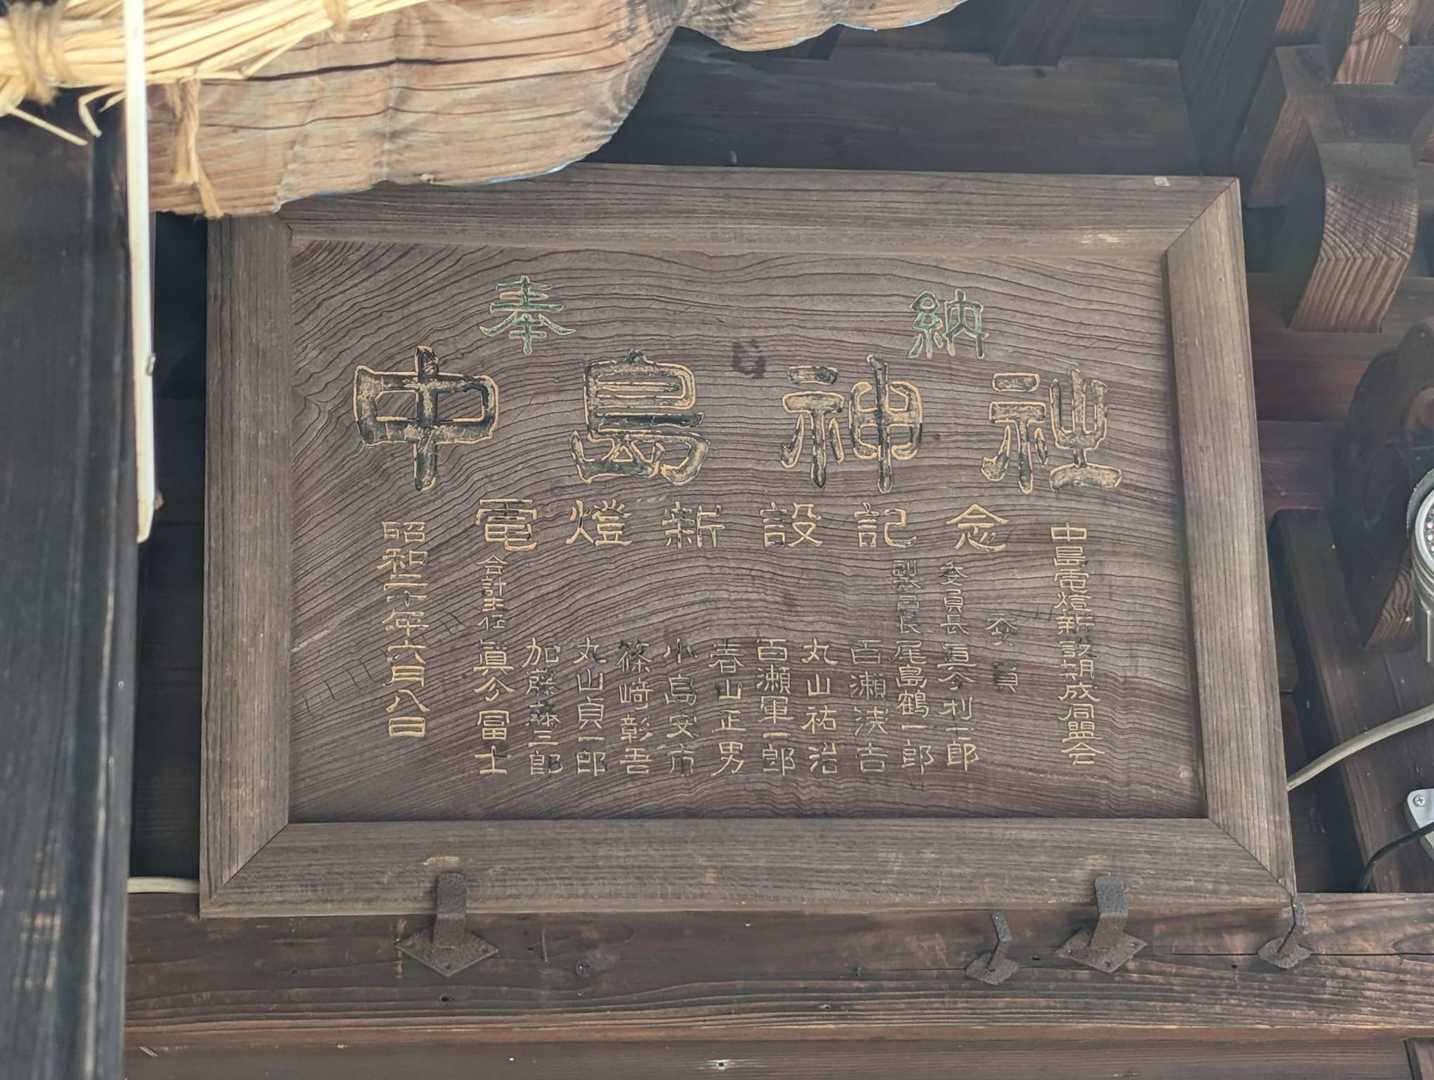 奉 納
中島神社
電燈新設記念
中島電燈新設期成同盟会
委員
委員長 眞今利一郎
尾島鶴一郎
百瀬漢吉
丸山祐治
百瀬軍一郎
春山正男
小島安市
篠崎彰吾
丸山貞一郎
加藤藤三郎
会計主任 眞今冨士
昭和二十年六月八日